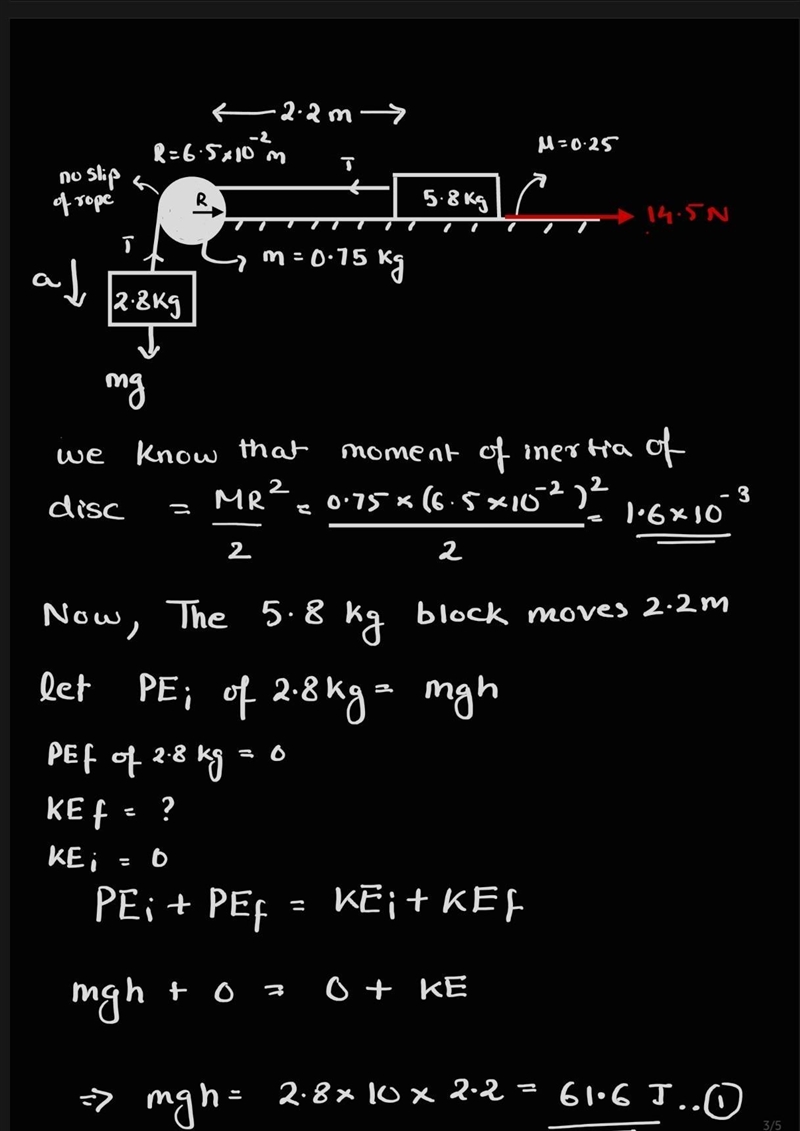 2.2 m
R=6.5×10⁻² m
μ=0.25
no slip of rope
T
R
5.8 kg
14.5N
T
m = 0.75 kg
a
2.8kg
mg
we know that moment of inertia of
disc = MR²/2 = 0.75 × (6.5 ×10⁻²)²/2 = 1.6×10⁻³
Now, The 5.8 kg block moves 2.2m
let PEi of 2.8kg = mgh
PEf of 2.8 kg = 0
KEf = ?
KEi = 0
PEi + PEf = KEi + KEf
mgh + 0 = 0 + KE
⇒ mgh = 2.8× 10 × 2.2 = 61.6 J ..①
3/5